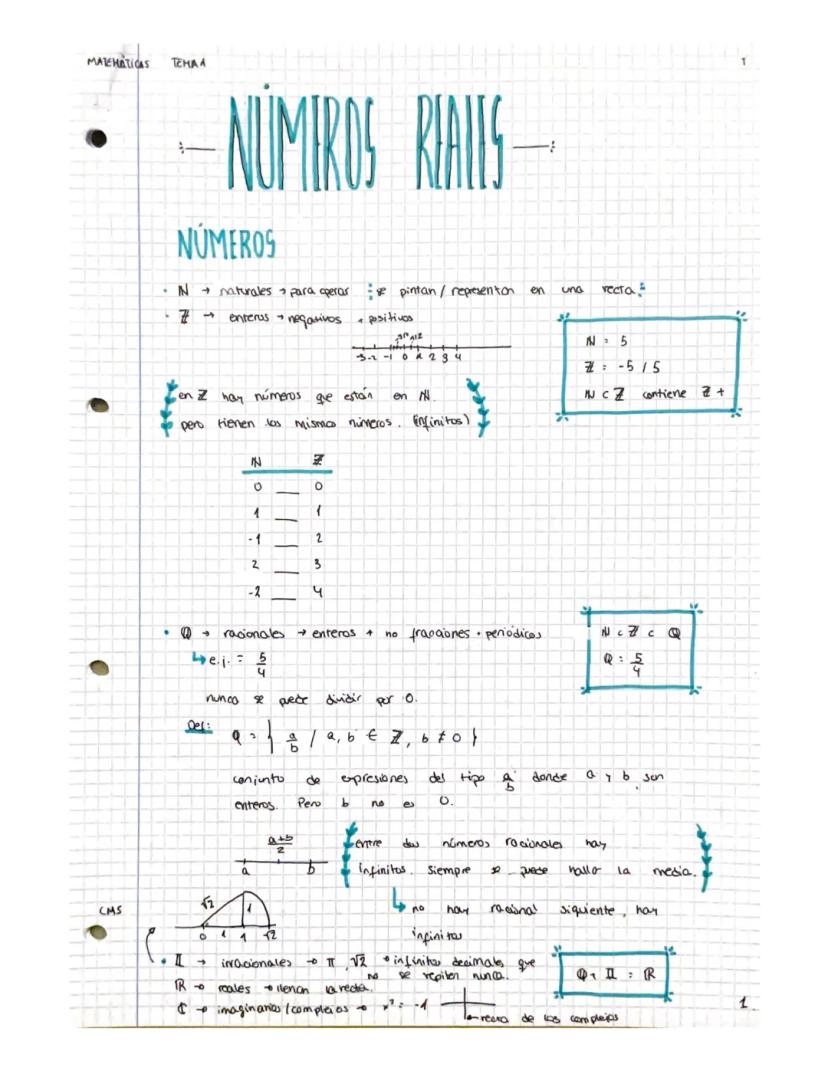 MATEMÁTICAS TEMA 1
NÚMEROS REALES
NÚMEROS
• ℕ → naturales → para operar se pintan / representan en una recta
• ℤ → enteros → negativos + positivos
-3 -2 -1 0 1 2 3 4
ℕ = 5
ℤ = -5 / 5
ℕ ⊂ ℤ contiene ℤ +
en ℤ hay números que están en ℕ.
pero tienen los mismos números. (infinitos)
ℕ ℤ
0 __ 0
1 __ 1
-1 __ 2
2 __ 3
-2 __ 4
• ℚ → racionales → enteros + no fracciones + periódicos
↳ e.j. = 5/4
ℕ ⊂ ℤ ⊂ ℚ
ℚ = 5/4
nunca se puede dividir por 0.
Def: ℚ = { a/b / a, b ∈ ℤ, b ≠ 0 }
conjunto de expresiones del tipo a/b donde a y b son
enteros. Pero b no es 0.
a+b/2
a b
entre dos números racionales hay
infinitos. Siempre se puede hallar la media.
↳ no hay racional siguiente, hay
infinitos
CMS
√2 1
0 1 1 √2
• 𝕀 → irracionales → π, √2 → infinitos decimales que
no se repiten nunca.
ℝ → reales → llenan la recta.
ℚ + 𝕀 = ℝ
ℂ → imaginarios / complejos → x² = -1
recta de los complejos
1